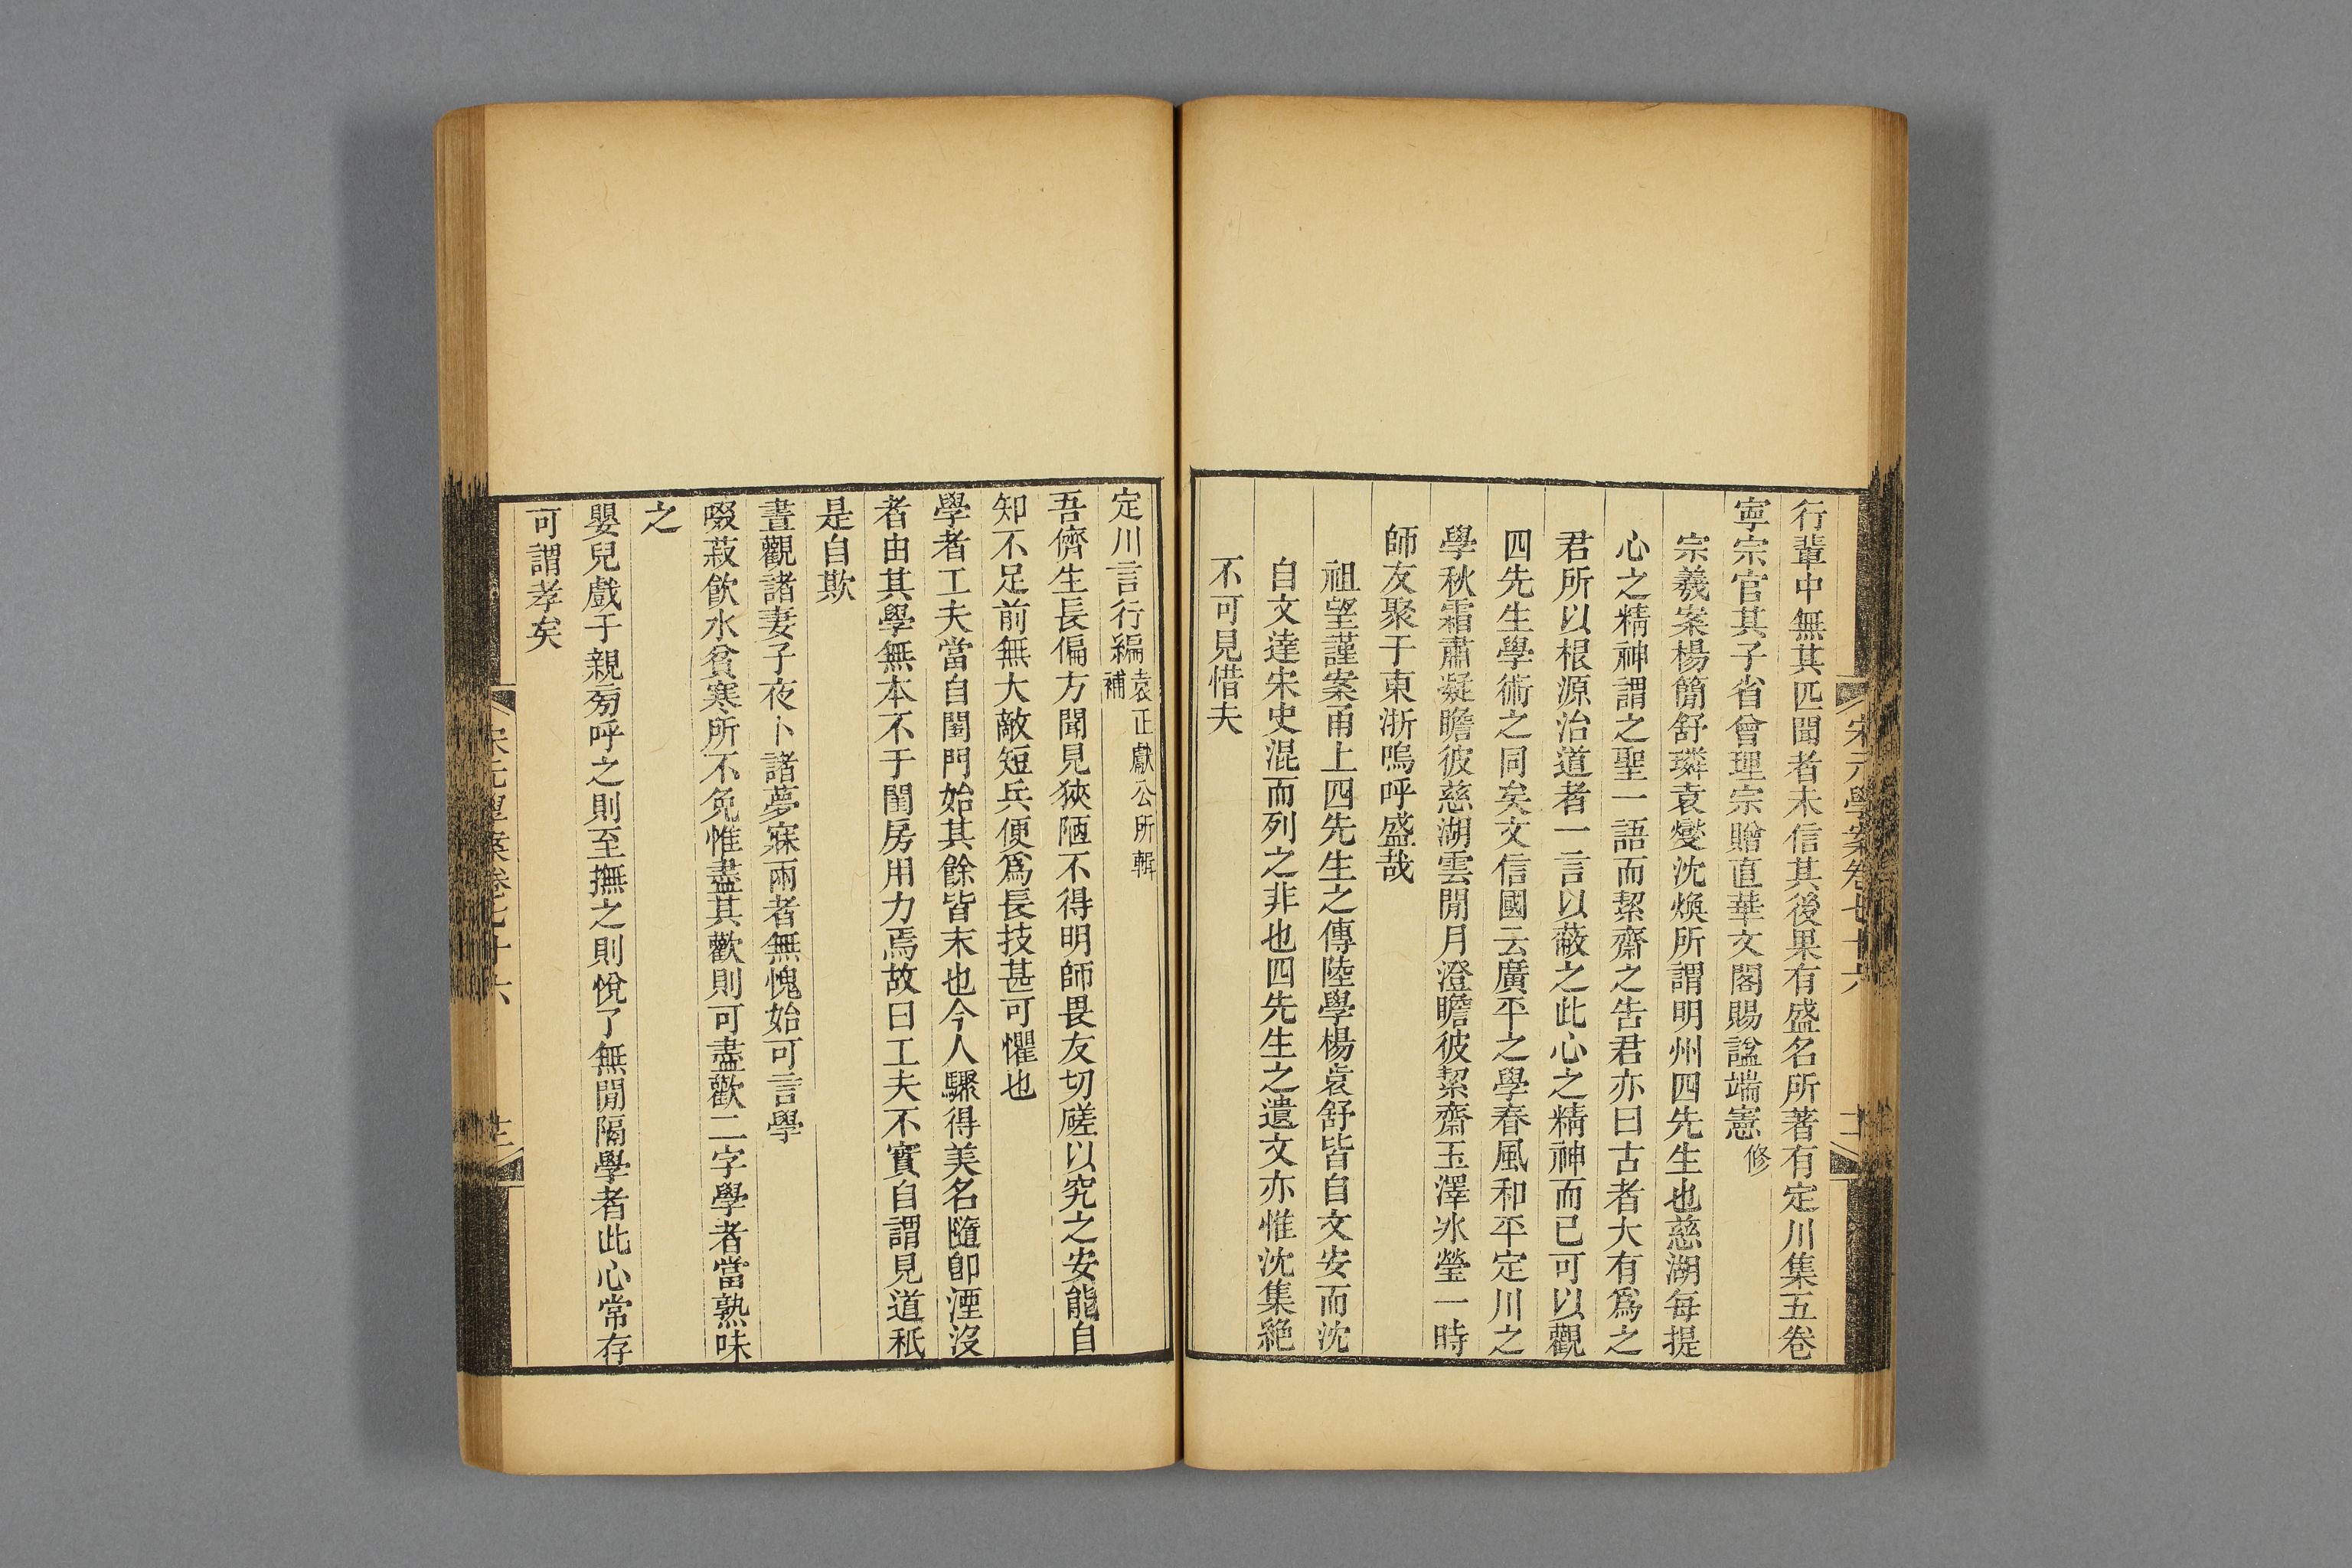 宋元學案卷七十六
十二
行輩中無其匹聞者未信其後果有盛名所著有定川集五卷
寧宗官其子省曾理宗贈直華文閣賜諡端憲修
宗羲案楊簡舒璘袁燮沈煥所謂明州四先生也慈湖每提
心之精神謂之聖一語而絜齋之告君亦曰古者大有爲之
君所以根源治道者一言以蔽之此心之精神而已可以觀
四先生學術之同矣文信國云廣平之學春風和平定川之
學秋霜肅凝瞻彼慈湖雲閒月澄瞻彼絜齋玉澤冰瑩一時
師友聚于東浙嗚呼盛哉
祖望謹案甬上四先生之傳陸學楊袁舒皆自文安而沈
自文達宋史混而列之非也四先生之遺文亦惟沈集絕
不可見惜夫
定川言行編袁正獻公所輯
補
吾儕生長偏方聞見狹陋不得明師畏友切磋以究之安能自
知不足前無大敵短兵便爲長技甚可懼也
學者工夫當自閨門始其餘皆末也今人驟得美名隨卽湮沒
者由其學無本不于閨房用力焉故曰工夫不實自謂見道秖
是自欺
晝觀諸妻子夜卜諸夢寐兩者無愧始可言學
啜菽飮水貧寒所不免惟盡其歡則可盡歡二字學者當熟味
之
嬰兒戲于親旁呼之則至撫之則悅了無閒隔學者此心常存
可謂孝矣
宋元學案卷七十六